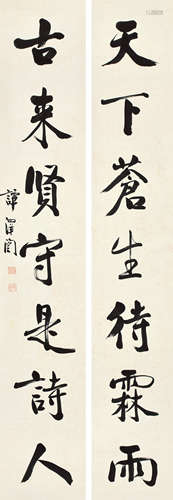 天下蒼生待霖雨
古来賢守是詩人
譚澤闓